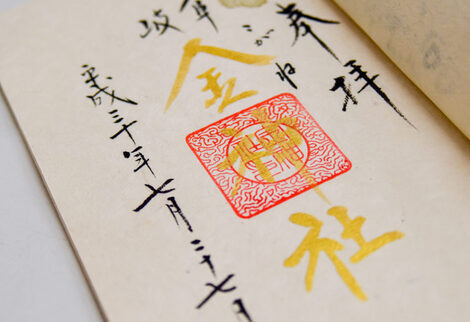 奉拝
こがね
岐阜
金神社
平成三十年七月二十七日